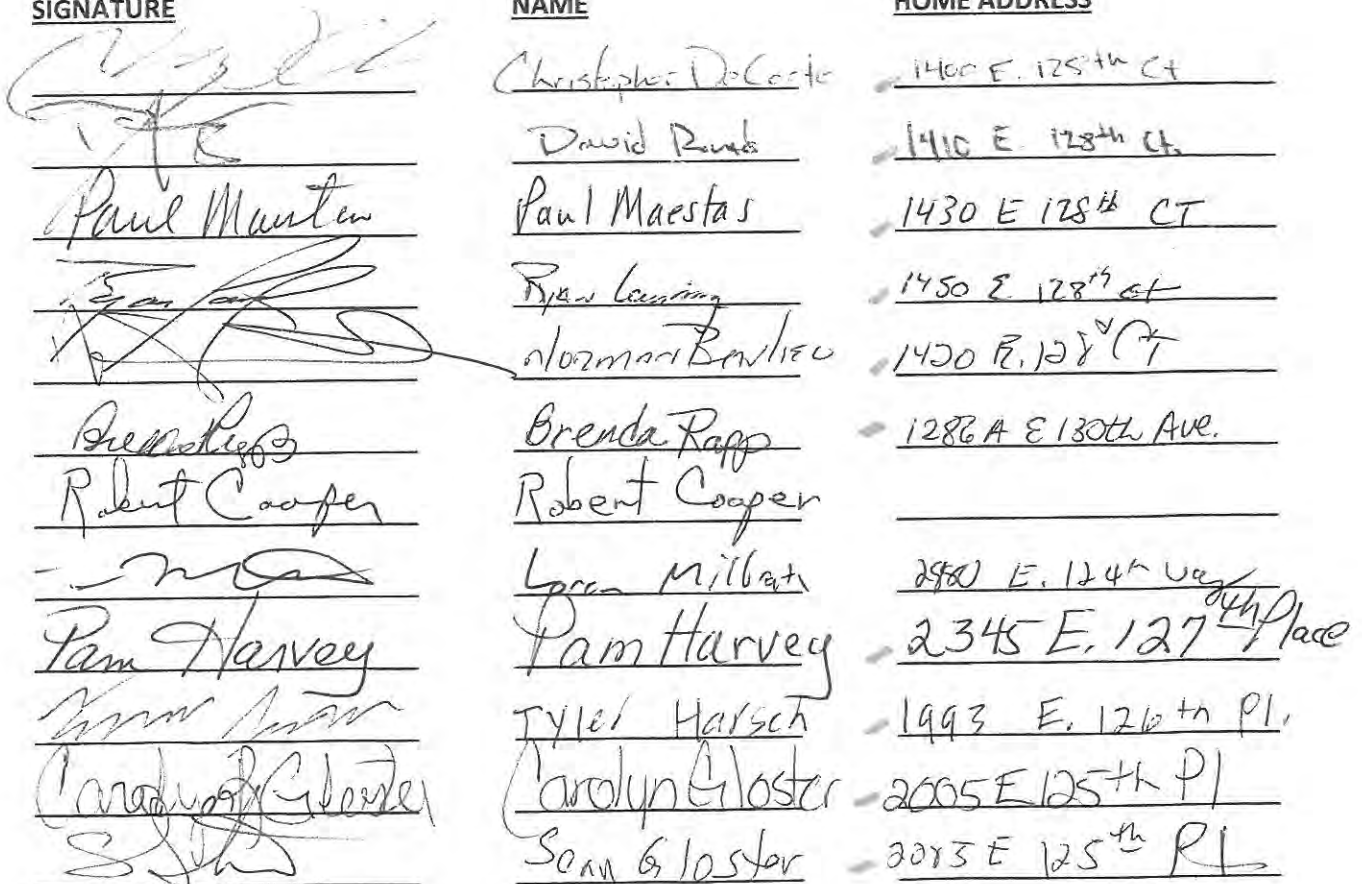 SIGNATURE NAME HOME ADDRESS
Christopher DeCoste 1400 E. 128th Ct
David 1410 E 128th Ct.
Paul Maestas Paul Maestas 1430 E 128th CT
Ryan Lanning 1450 E 128th ct
Norman 1420 E. 128 CT
Brenda Rapp 1286 A E 130th Ave.
Robert Cooper Robert Cooper
Loren Milbrath E. 124th Way
Pam Harvey Pam Harvey 2345 E. 127th Place
Tyler Harsch 1993 E. 126th Pl.
Carolyn Gloster Carolyn Gloster 2005 E 125th Pl
Sean Gloster E 125th PL